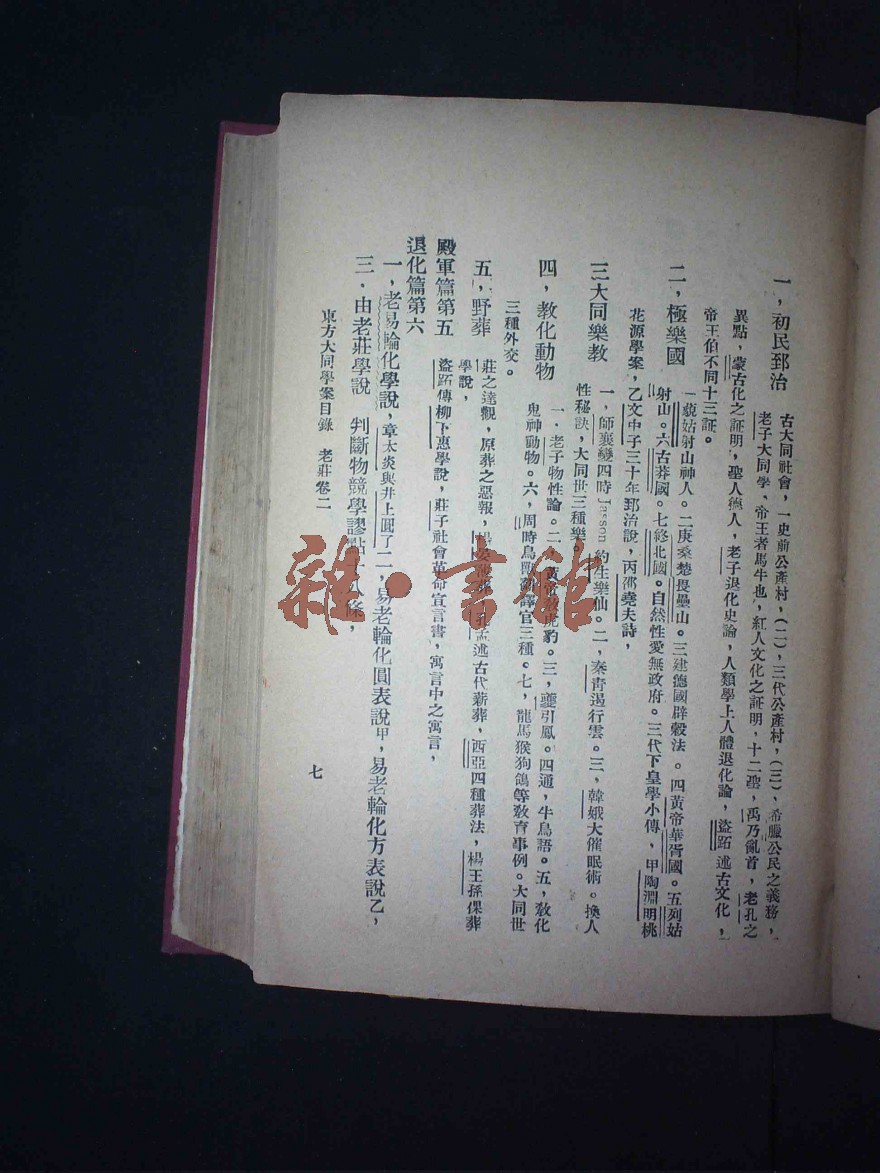 一，初民郅治
古大同社會，一史前公產村，（二），三代公產村，（三），希臘公民之義務，
老子大同學、帝王者馬牛也，紅人文化之証明，十二聖，禹乃亂首，老孔之
異點，蒙古化之証明，聖人德人，老子退化史論，人類學上人體退化論，盜跖述古文化，
帝王伯不同十三証。
二，極樂國
一藐姑射山神人。二庚桑楚畏壘山。三建德國辟穀法。四黃帝華胥國。五列姑
射山。六古莽國。七終北國。自然性愛無政府。三代下皇學小傳、甲陶淵明桃
花源學案，乙文中子三十年郅治說，丙邵堯夫詩，
三大同樂教
一，師襄變四時 約生樂仙。二，秦青遏行雲。三，韓娥大催眠術。換人
性秘訣，大同世三種樂。
四，教化動物
一，老子物性論。二，黃帝教虎豹。三，夔引鳳。四通，牛鳥語。五，教化
鬼神動物。六，周時鳥獸翻譯官三種。七，龍馬猴狗鴿等教育事例。大同世
三種外交。
五，野葬
莊之達觀，原葬之惡報，孔孟述古代薪葬，西亞四種葬法，楊王孫倮葬
學說，
殿軍篇第五
盜跖傳柳下惠學說，莊子社會革命宣言書，寓言中之寓言，
退化篇第六
一，老易輪化學說，章太炎與井上圓了二，易老輪化圓表說甲，易老輪化方表說乙，
三．由老莊學說 判斷物競學謬點十八條，
東方大同學案目錄 老莊卷二
七
雜·書館